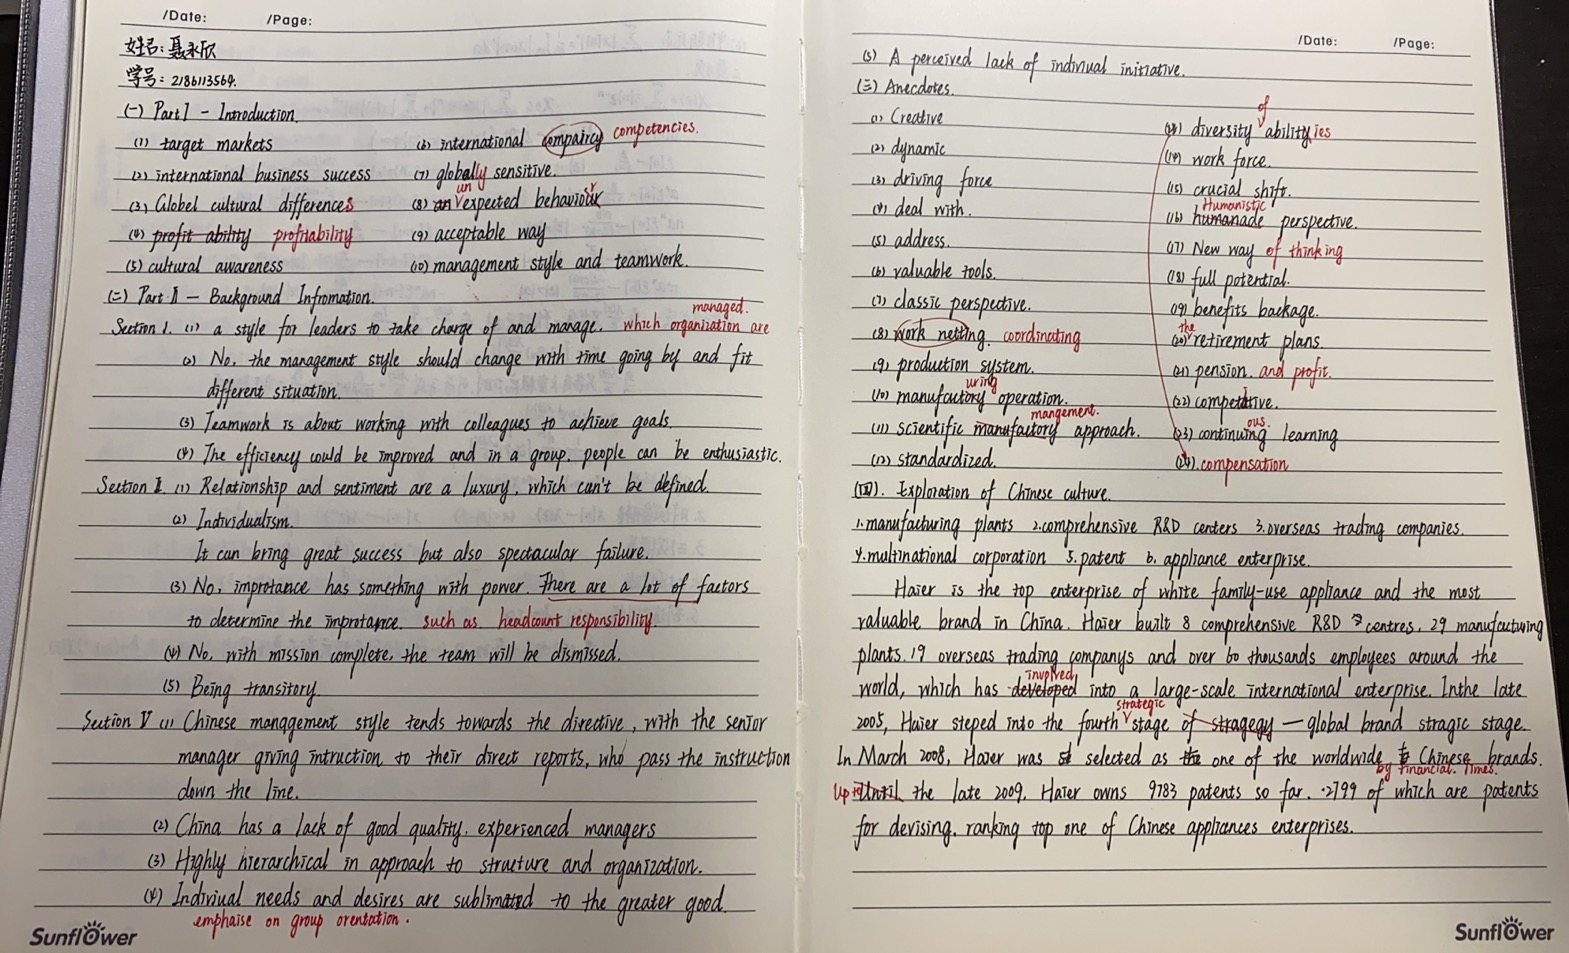 /Date: /Page:
姓名: 聂永欣
学号: 2186113564.
(一) Part I - Introduction.
(1) target markets
(2) international business success
(3) Global cultural differences
(4) profit ability profitability
(5) cultural awareness
(6) international compaircy competencies.
(7) globally sensitive.
(8) an unexpected behavior
(9) acceptable way
(10) management style and teamwork.
(二) Part II - Background Infromation.
managed.
Section I. (1) a style for leaders to take charge of and manage. which organization are
(2) No, the management style should change with time going by and fit
different situation.
(3) Teamwork is about working with colleagues to achieve goals.
(4) The efficiency could be improved and in a group, people can be enthusiastic.
Section II. (1) Relationship and sentiment are a luxury, which can't be defined.
(2) Individualism.
It can bring great success but also spectacular failure.
(3) No, improtance has something with power. There are a lot of factors
to determine the improtance. such as. headcount responsibility
(4) No, with mission complete, the team will be dismissed.
(5) Being transitory.
Section V (1) Chinese management style tends towards the directive, with the senior
manager giving intruction to their direct reports, who pass the instruction
down the line.
(2) China has a lack of good quality, experienced managers
(3) Highly hierarchical in approach to structure and organization.
(4) Indiviual needs and desires are sublimated to the greater good.
emphaise on group orentation.
Sunflower
/Date: /Page:
(5) A perceived lack of indiviual initiative.
(三) Anecdotes.
(1) Creative
(2) dynamic
(3) driving force
(4) deal with.
(5) address.
(6) valuable tools.
(7) classic perspective.
(8) work netting. coordinating
(9) production system.
uring
(10) manufactory operation.
mangement.
(11) scientific manufactory approach.
(12) standardized.
of
(13) diversity abilityies
(14) work force.
(15) crucial shift.
Humanistic
(16) humanade perspective.
(17) New way of thinking
(18) full potential.
(19) benefits backage.
the
(20) retirement plans.
(21) pension and profit.
(22) competitive.
ous.
(23) continuing learning
(24). compensation
(四). Exploration of Chinese culture.
1.manufacturing plants 2.comprehensive R&D centers 3.overseas trading companies.
4.multinational corporation 5.patent 6. appliance enterprise.
Haier is the top enterprise of white family-use appliance and the most
valuable brand in China. Haier built 8 comprehensive R&D centres, 29 manufacturing
plants. 19 overseas trading companys and over 60 thousands employees around the
involved
world, which has developed into a large-scale international enterprise. Inthe late
strategic
2005, Haier steped into the fourth stage of stragegy — global brand stragic stage.
In March 2008, Haier was selected as the one of the worldwide Chinese brands.
by Financial Times.
Up to Until the late 2009, Haier owns 9783 patents so far. 2799 of which are patents
for devising, ranking top one of Chinese appliances enterprises.
Sunflower